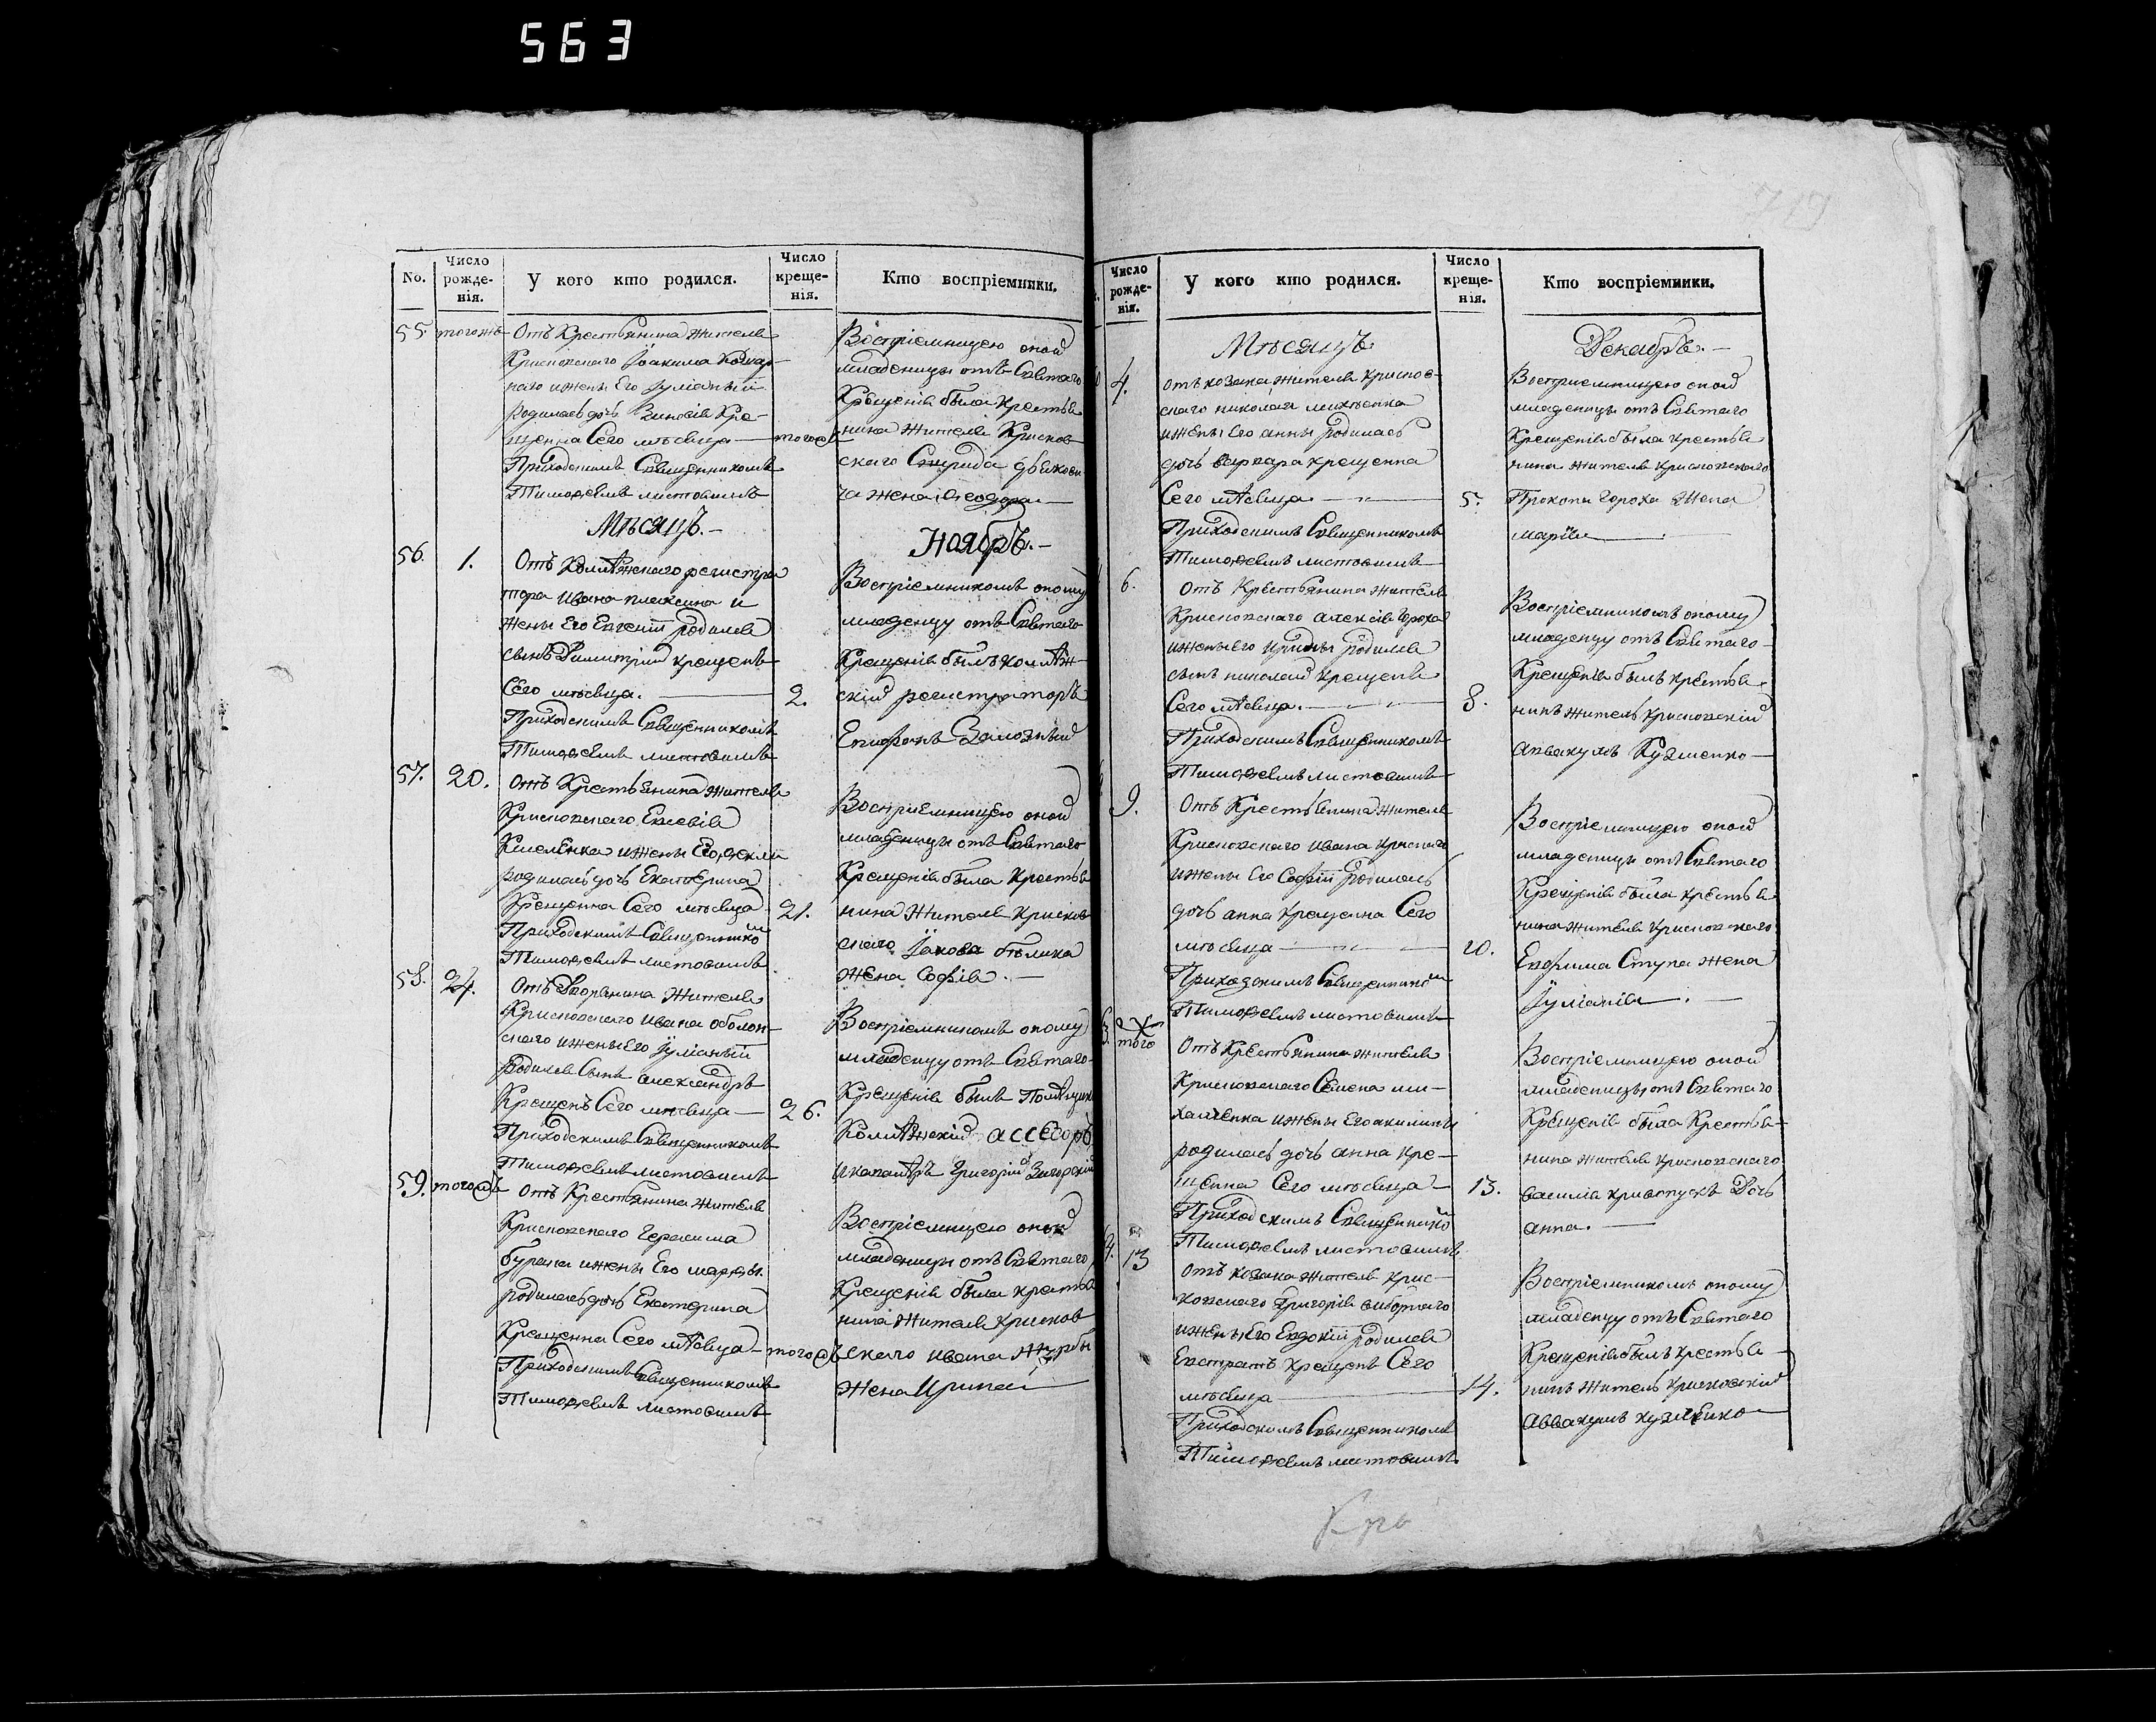 563
No.
Число рожденія.
У кого кто родился.
Число крещенія.
Кто воспріемники.
55
тогожъ
Отъ Крестьянина жителя
Крисковскаго Іоакима
наго и жены Его Іуліаніи
родилась дочь Зиновія Кре-
щенна Сего мѣсяца — тогожъ
Приходскимъ Священникомъ
Тимофеемъ листовимъ
Воспріемницею оной
младеницы отъ Святаго
Крещенія была крестья
нина жителя Крисков
скаго Спирида
жена Феодора —
Мѣсяцъ. —
Ноябрь. —
56.
1.
Отъ Колѣжскаго регистра
тора Ивана плаксина и
жены Его Евгеніи родился
сынъ Димитрій крещенъ
Сего мѣсяца. —
2.
Приходскимъ Священникомъ
Тимофеемъ листовимъ
Воспріемникомъ оному
младенцу отъ Святаго
Крещенія былъ колѣж-
скій регистраторъ
Епифанъ Залозный
57.
20.
Отъ Крестьянина жителя
Крисковскаго Евсевія
Киселенка и жены Его феклы
родилась дочь Екатерина
Крещенна Сего мѣсяца
21.
Приходскимъ Священнико
Тимофеемъ листовимъ
Воспріемницею оной
младеницы отъ Святаго
Крещенія была Крестья
нина жителя Крисков
скаго Іакова бѣлика
жена Софія. —
58.
24.
Отъ Дворянина жителя
Крисковскаго Ивана оболон-
скаго и жены Его Іуліаніи
Родился Сынъ александръ
Крещенъ Сего мѣсяца —
26.
Приходскимъ Священникомъ
Тимофеемъ листовимъ
Воспріемникомъ оному
младенцу отъ Святаго
Крещенія былъ Помѣщикъ
Колѣжскій ассесоръ
и кавалѣръ Григорій Загорскій
59.
тогожъ
Отъ Крестьянина жителя
Крисковскаго Герасима
бурака и жены Его марфы
родилась дочь Екатерина
Крещенна Сего мѣсяца — тогожъ
Приходскимъ Священникомъ
Тимофеемъ листовимъ
Воспріемницею оной
младеницы отъ Святаго
Крещенія была крестья
нина жителя крисков
скаго ивана журбы
жена Ирина —
Число рожденія.
У кого кто родился.
Число крещенія.
Кто воспріемники.
Мѣсяцъ
Декабрь. —
4.
отъ козака жителя крисков-
скаго николая михѣенка
и жены Его анны родилась
дочь варвара крещенна
Сего мѣсяца. —
5.
Приходскимъ Священникомъ
Тимофеемъ листовимъ
Воспріемницею оной
младеницы отъ Святаго
Крещенія была крестья
нина жителя крисковскаго
Прокопа Гороха жена
марія —
6.
Отъ Крестьянина жителя
Крисковскаго алексія Гороха
и жены Его ирины родился
сынъ николай крещенъ
Сего мѣсяца. —
8.
Приходскимъ Священникомъ
Тимофеемъ листовимъ
Воспріемникомъ оному
младенцу отъ Святаго
Крещенія былъ крестья
нинъ житель крисковскій
аввакумъ Кузменко —
9.
Отъ Крестьянина жителя
Крисковскаго ивана
и жены Его Софіи родилась
дочь анна крещенна Сего
мѣсяца —
10.
Приходскимъ Священнико
Тимофеемъ листовимъ
Воспріемницею оной
младеницы отъ Святаго
Крещенія была крестья
нина жителя крисковскаго
Евфима Ступа жена
Іуліанія. —
того
Отъ Крестьянина жителя
Крисковскаго Семена ми-
халченка и жены Его акилины
родилась дочь анна кре-
щенна Сего мѣсяца —
13.
Приходскимъ Священнико
Тимофеемъ листовимъ
Воспріемницею оной
младеницы отъ Святаго
Крещенія была Крестья-
нина жителя крисковскаго
василія дочь
анна. —
13
отъ козака жителя крис-
ковскаго Григорія виборнаго
и жены Его Евдокіи родился
Евстратъ крещенъ Сего
мѣсяца —
14.
Приходскимъ Священникомъ
Тимофеемъ листовимъ
Воспріемникомъ оному
младенцу отъ Святаго
Крещенія былъ крестья
нинъ житель крисковскій
аввакумъ кузменко —